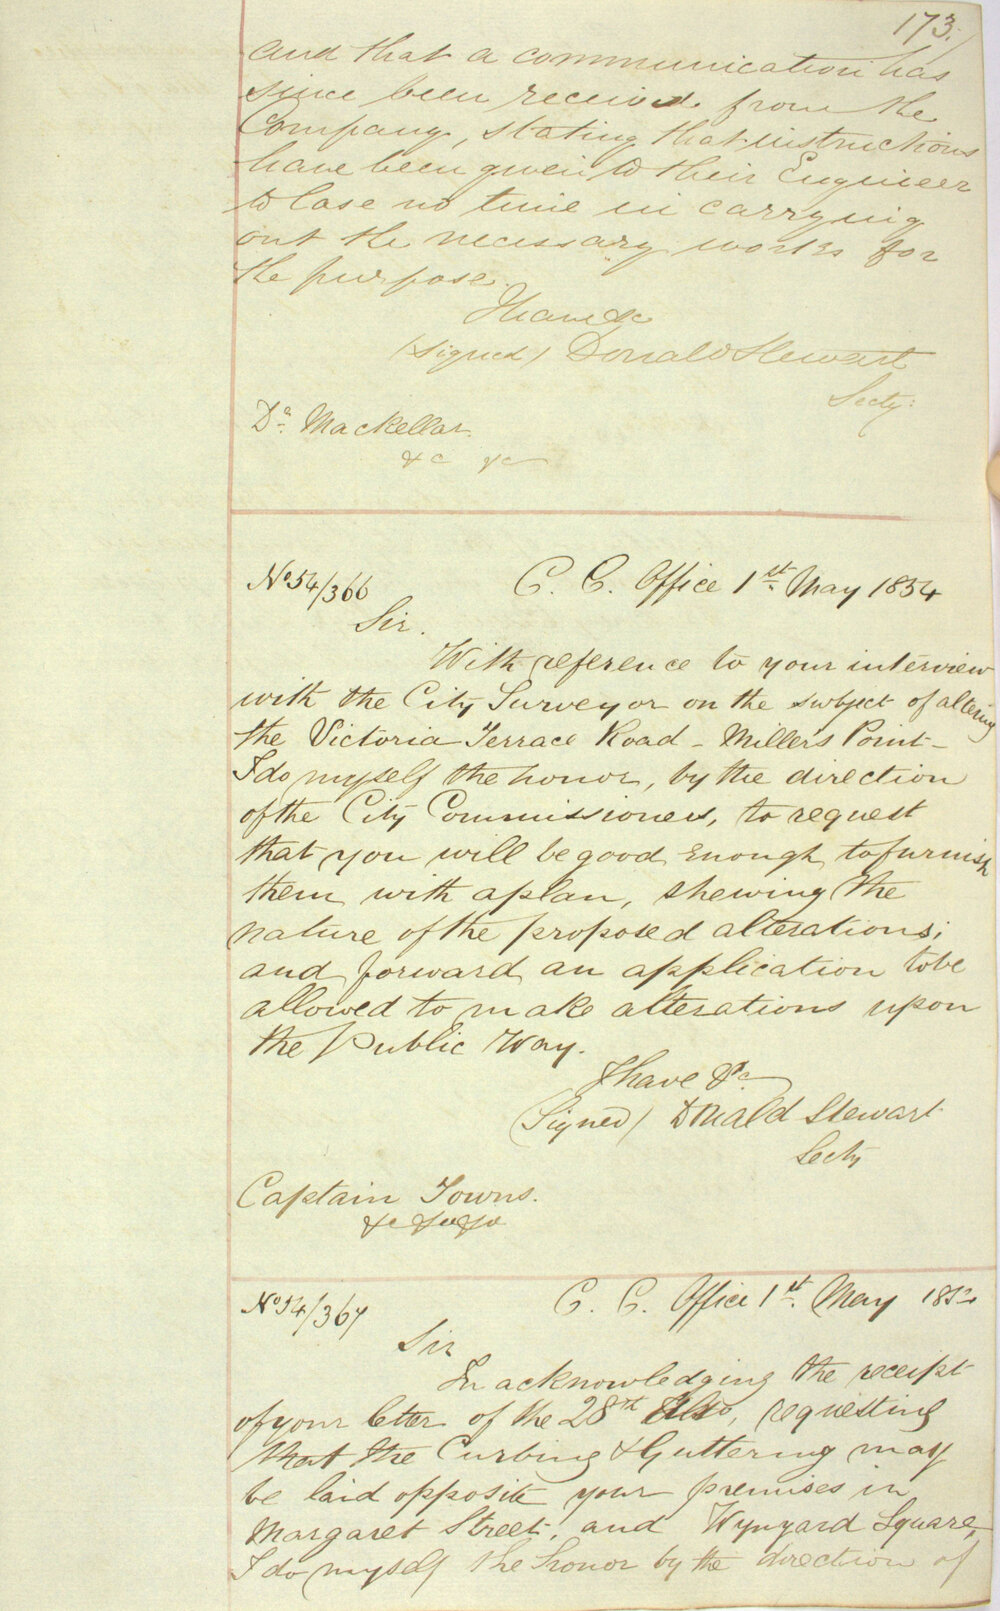 173.
and that a communication has
since been received from the
Company, stating that instructions
have been given to their Engineer
to lose no time in carrying
out the necessary works for
the purpose.
I have &c
(signed) Donald Stewart
Secty:
Dr. Mackellar.
&c &c
No 54/366
C. C. Office 1st May 1854
Sir.
With reference to your interview
with the City Surveyor on the subject of altering
the Victoria Terrace Road - Millers Point -
I do myself the honor, by the direction
of the City Commissioners, to request
that you will be good enough to furnish
them with a plan, shewing the
nature of the proposed alterations;
and forward an application to be
allowed to make alterations upon
the Public Way.
I have &c
(Signed) Donald Stewart
Secty
Captain Towns.
&c &c &c
No 54/367
C. C. Office 1st. May 1854
Sir
In acknowledging the receipt
of your letter of the 28th Ulto, requesting
that the Curbing & Guttering may
be laid opposite your premises in
Margaret Street, and Wynyard Square,
I do myself the honor by the direction of